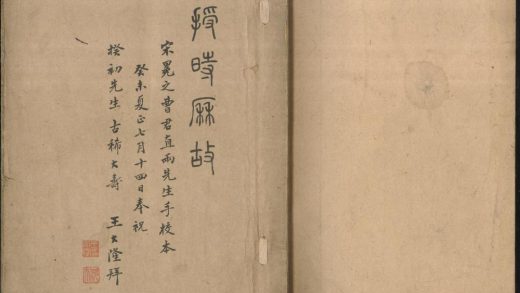 授時厤故
宋冕之曹君直兩先生手校本
癸未夏正七月十四日奉祝
揆初先生 古稀大壽 王大隆拜